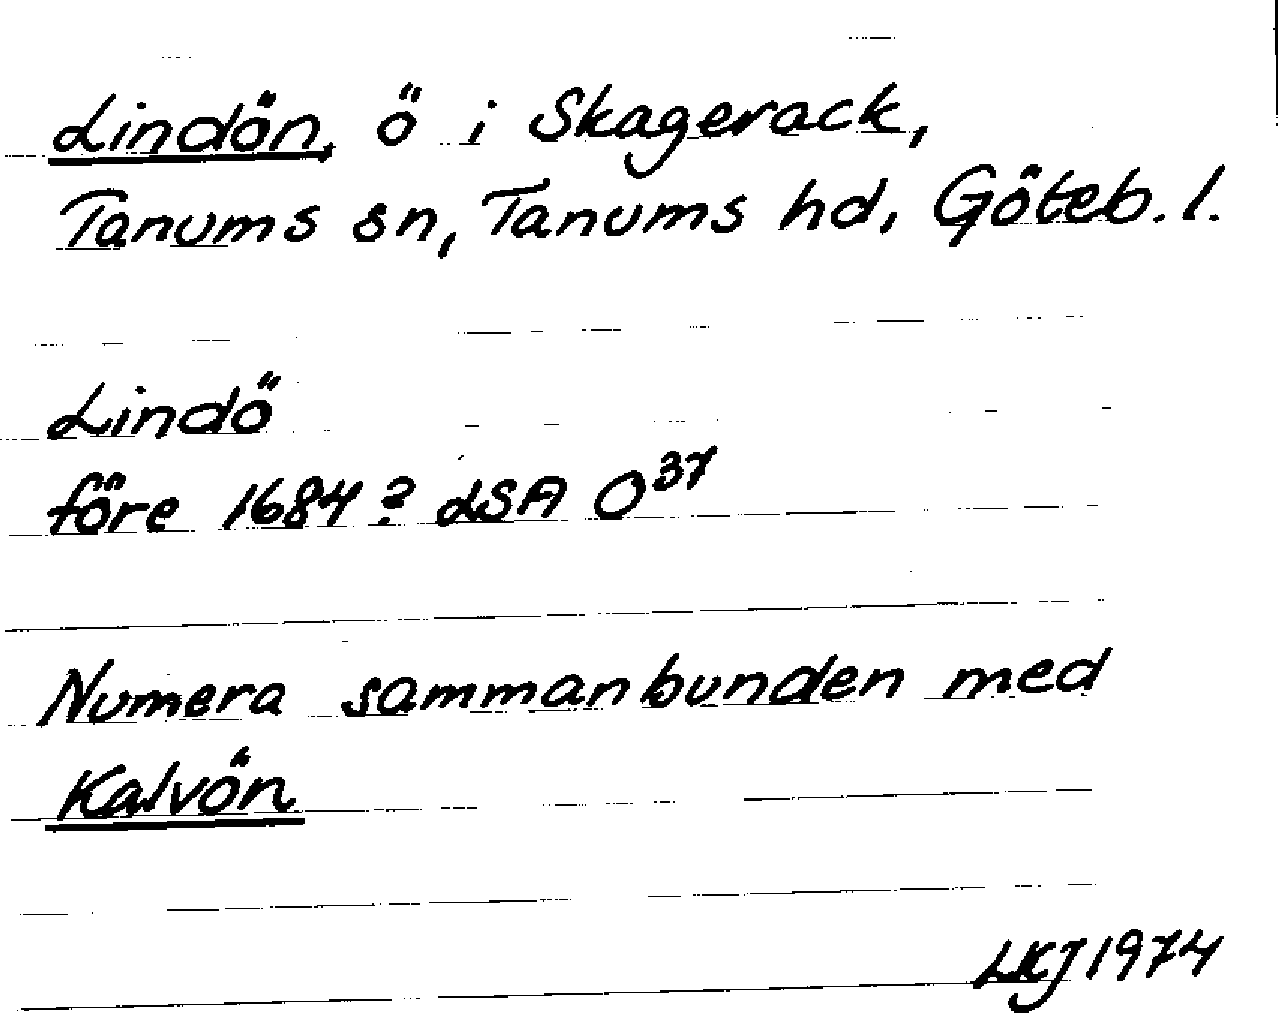 Lindön, ö i Skagerack,
Tanums sn, Tanums hd, Göteb. l.
Lindö
före 1684? LSA O³⁷
Numera sammanbunden med
Kalvön
LKJ 1974